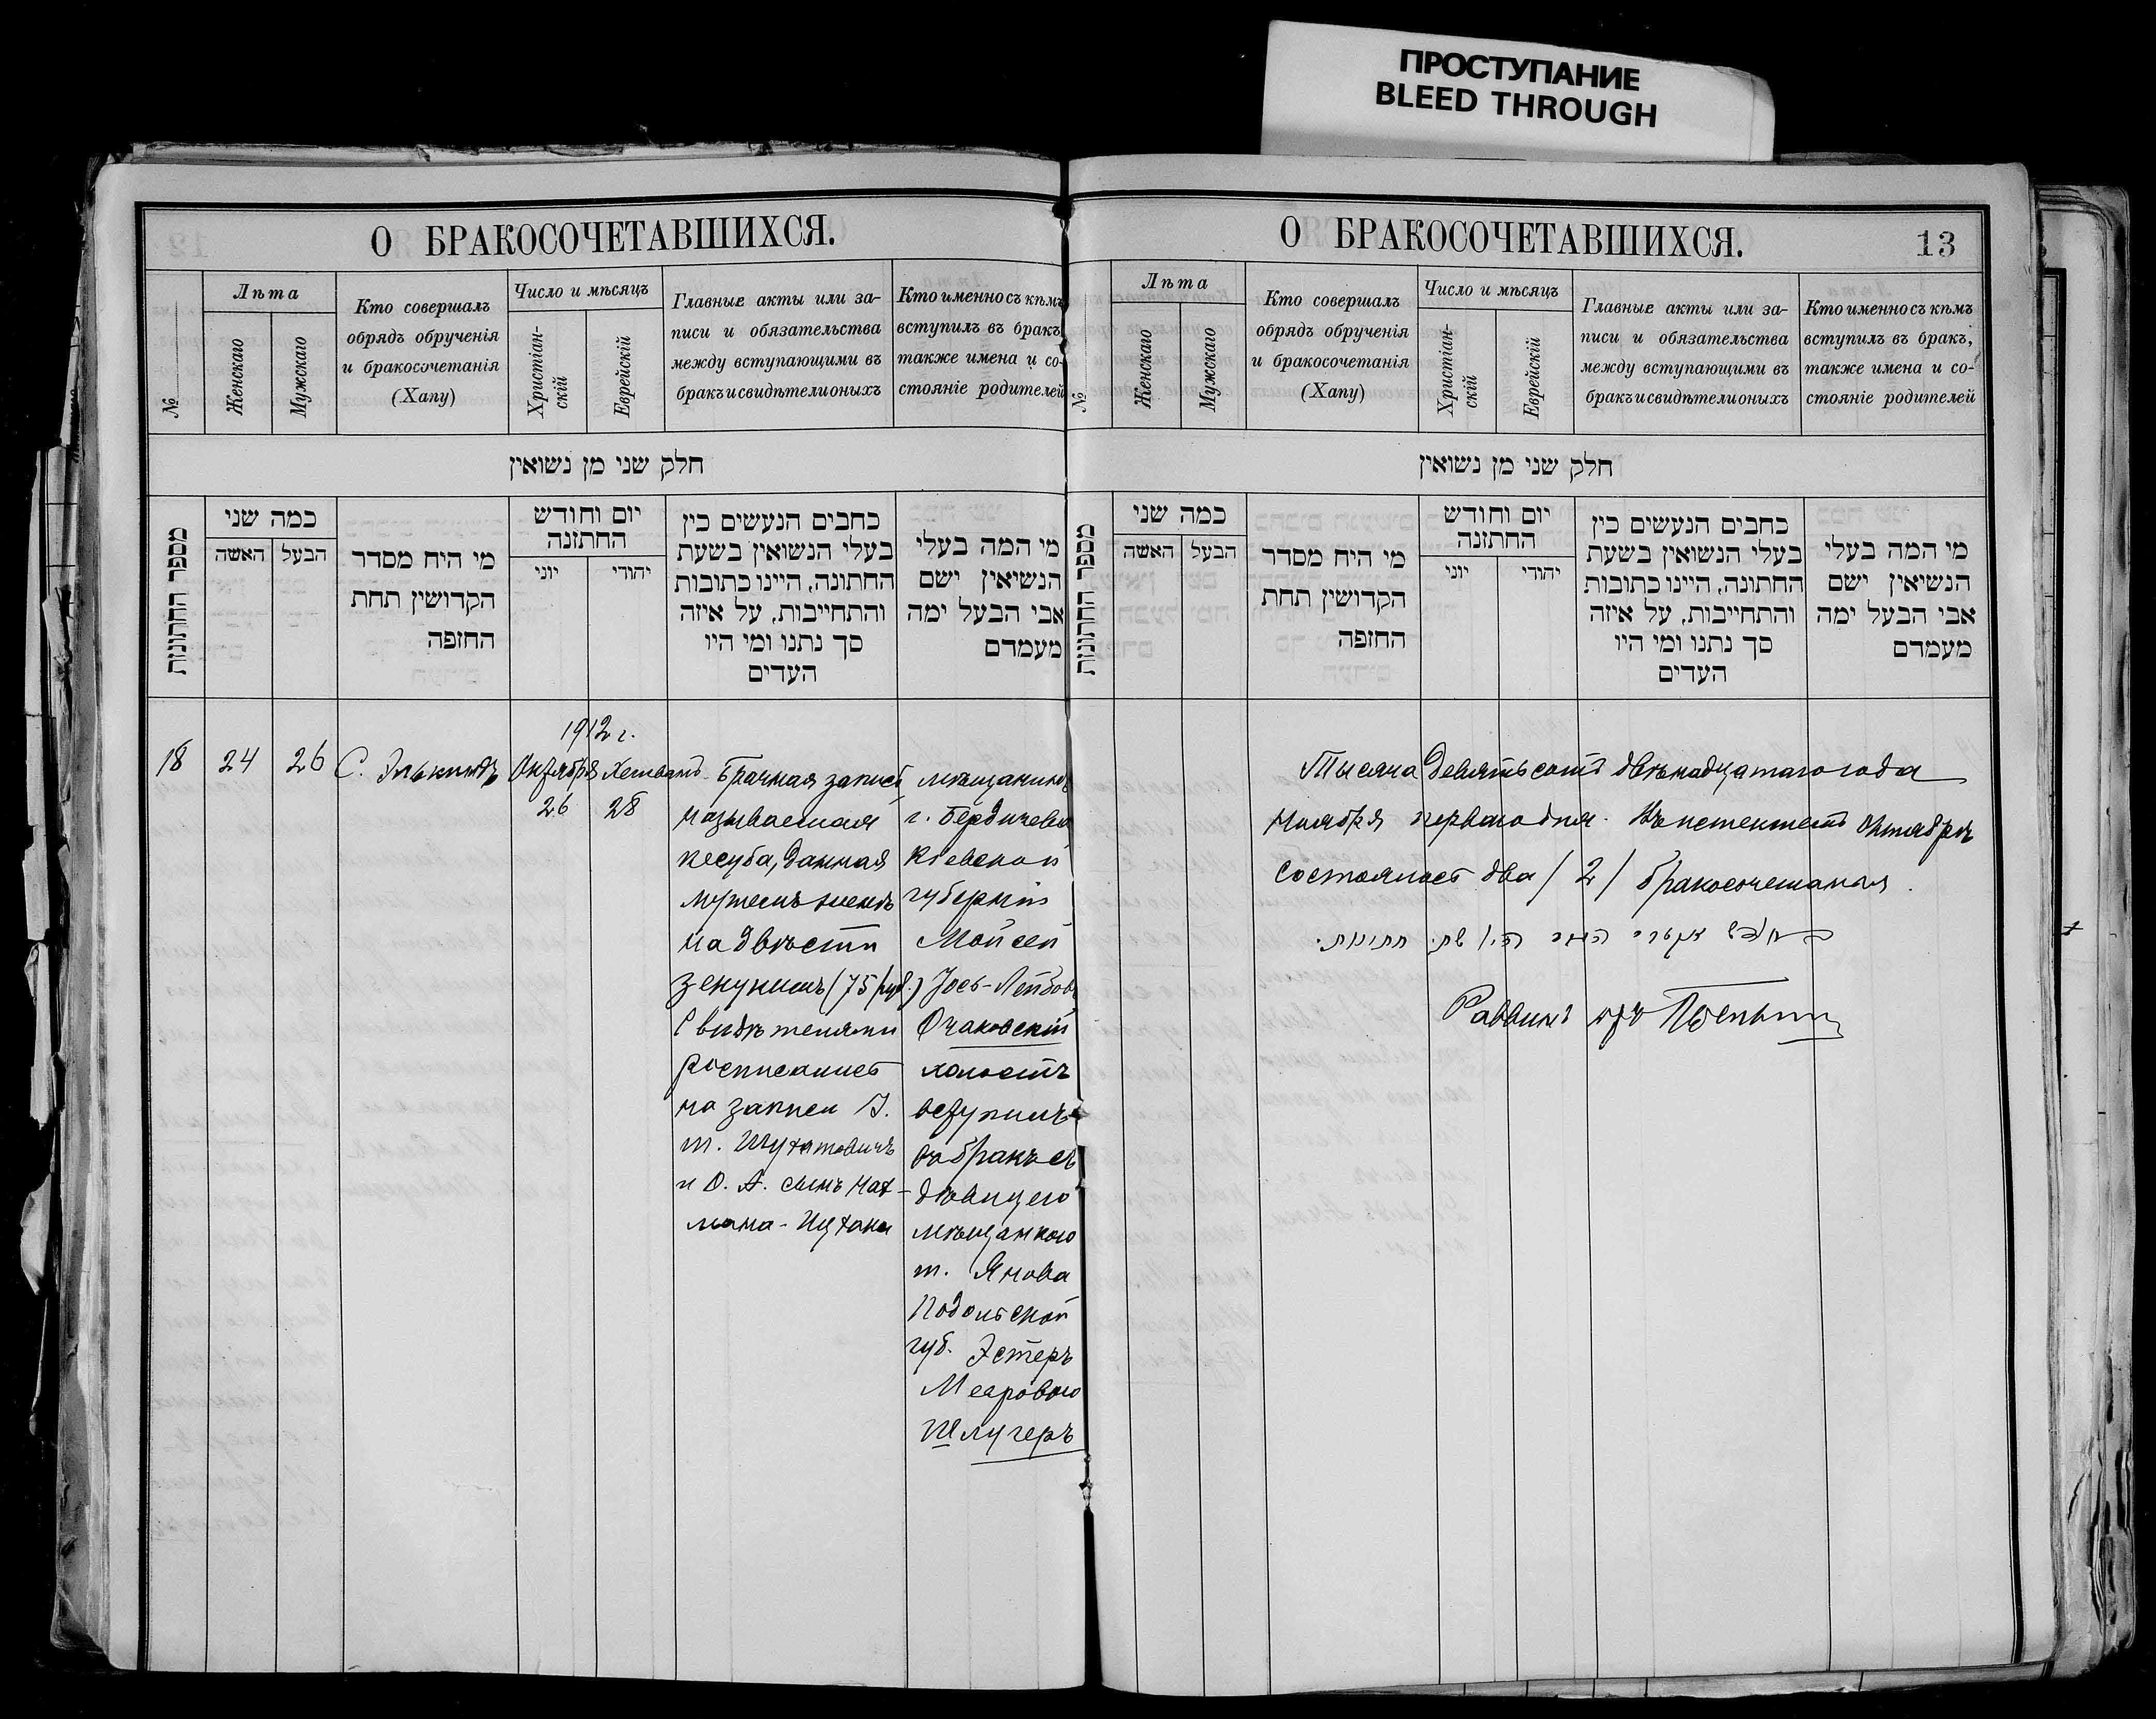 ПРОСТУПАНИЕ
BLEED THROUGH
О БРАКОСОЧЕТАВШИХСЯ.
№
Лѣта
Женскаго
Мужскаго
Кто совершалъ
обрядъ обрученія
и бракосочетанія
(Хапу)
Число и мѣсяцъ
Христіан-
скій
Еврейскій
Главные акты или за-
писи и обязательства
между вступающими въ
бракъ и свидѣтели оныхъ
Кто именно съ кѣмъ
вступилъ въ бракъ,
также имена и со-
стояніе родителей
חלק שני מן נשואין
מספר החתונות
כמה שני
האשה
הבעל
מי היח מסדר
הקדושין תחת
החופה
יום וחודש
החתונה
יוני
יהודי
כחבים הנעשים בין
בעלי הנשואין בשעת
החתונה, היינו כתובות
והתחייבות, על איזה
סך נתנו ומי היו
העדים
מי המה בעלי
הנשיאין ישם
אבי הבעל ימה
מעמדם
18
24
26
С. Элькиндъ
1912 г.
Октября
26
Хешванъ
28
Брачная запись
называемая
кесуба, данная
мужемъ женѣ
на двѣсти
зекукимъ (75 руб.)
Свидѣтелями
росписались
на записи І.
т. Шутатовичъ
и О. А. сынъ Нах-
мана-
мѣщанинъ
г. Бердичева
Кіевской
губерніи
Мойсей
Іось-Лейбовъ
Очаковскій
холостъ
вступилъ
въ бракъ съ
дѣвицею
мѣщанкою
м. Янова
Подольской
губ. Эстеръ
Меаровою
Шлугеръ
О БРАКОСОЧЕТАВШИХСЯ.
13
№
Лѣта
Женскаго
Мужскаго
Кто совершалъ
обрядъ обрученія
и бракосочетанія
(Хапу)
Число и мѣсяцъ
Христіан-
скій
Еврейскій
Главные акты или за-
писи и обязательства
между вступающими въ
бракъ и свидѣтели оныхъ
Кто именно съ кѣмъ
вступилъ въ бракъ,
также имена и со-
стояніе родителей
חלק שני מן נשואין
מספר החתונות
כמה שני
האשה
הבעל
מי היח מסדר
הקדושין תחת
החופה
יום וחודש
החתונה
יוני
יהודי
כחבים הנעשים בין
בעלי הנשואין בשעת
החתונה, היינו כתובות
והתחייבות, על איזה
סך נתנו ומי היו
העדים
מי המה בעלי
הנשיאין ישם
אבי הבעל ימה
מעמדם
Тысяча девятьсотъ двѣнадцатаго года
Ноября перваго дня. Въ истекшемъ Октябрѣ
состоялось два / 2 / бракосочетанія.
חתונות.
Раввинъ